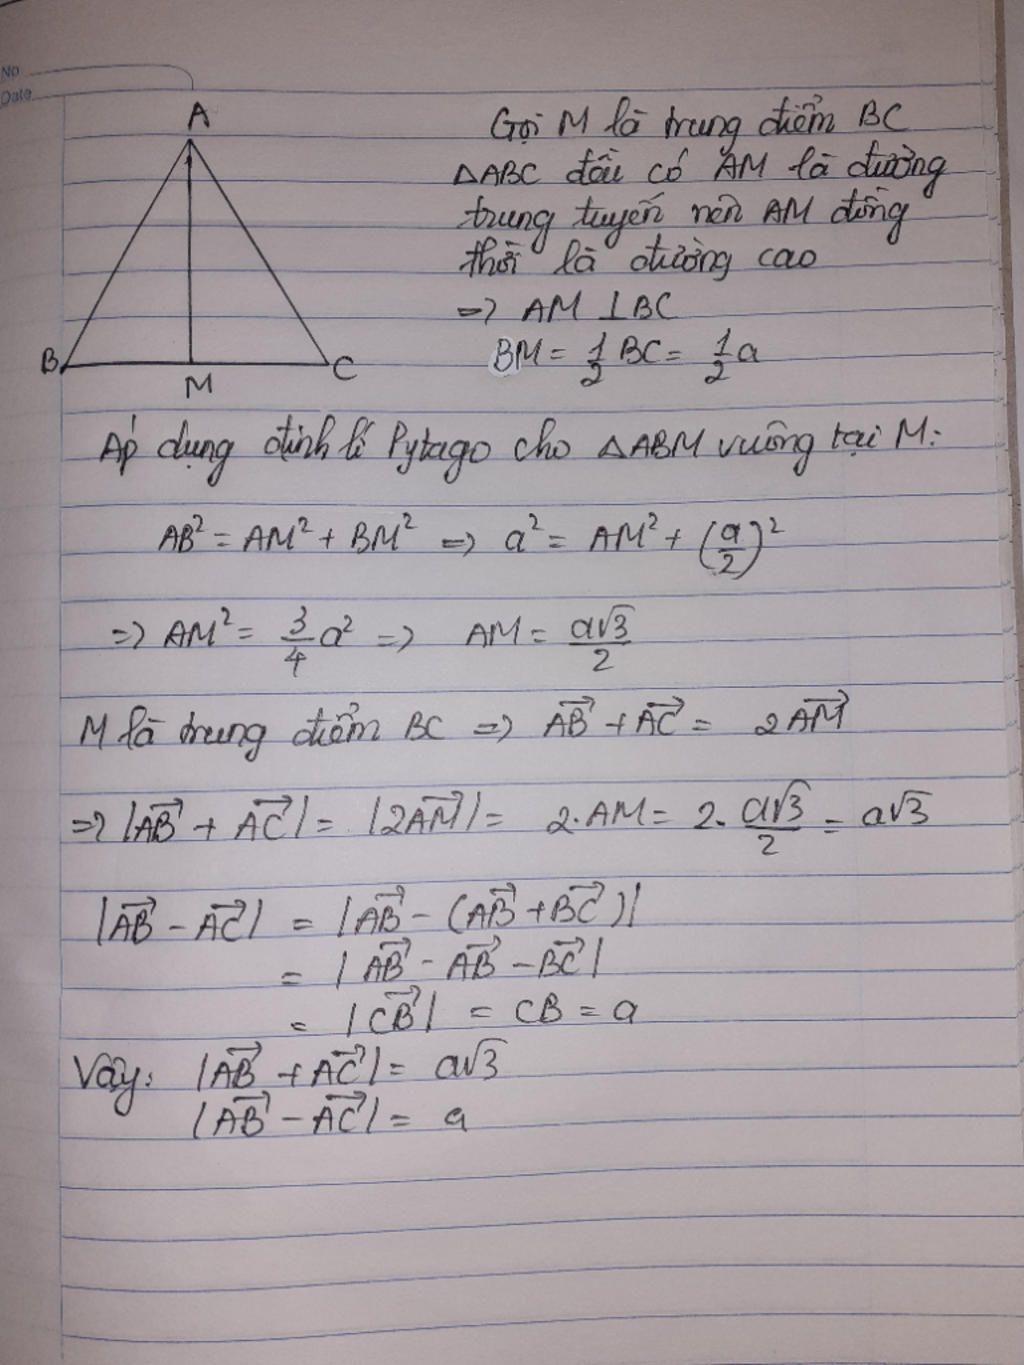 No
Date
A
B
M
C
Gọi M là trung điểm BC
△ABC đều có AM là đường
trung tuyến nên AM đồng
thời là đường cao
=> AM ⊥ BC
BM = 1/2 BC = 1/2 a
Áp dụng định lí Pytago cho △ABM vuông tại M:
AB² = AM² + BM² => a² = AM² + (a/2)²
=> AM² = 3/4 a² => AM = a√3/2
M là trung điểm BC => AB⃗ + AC⃗ = 2AM⃗
=> |AB⃗ + AC⃗| = |2AM⃗| = 2.AM = 2. a√3/2 = a√3
|AB⃗ - AC⃗| = |AB⃗ - (AB⃗ + BC⃗)|
= |AB⃗ - AB⃗ - BC⃗|
= |CB⃗| = CB = a
Vậy: |AB⃗ + AC⃗| = a√3
|AB⃗ - AC⃗| = a